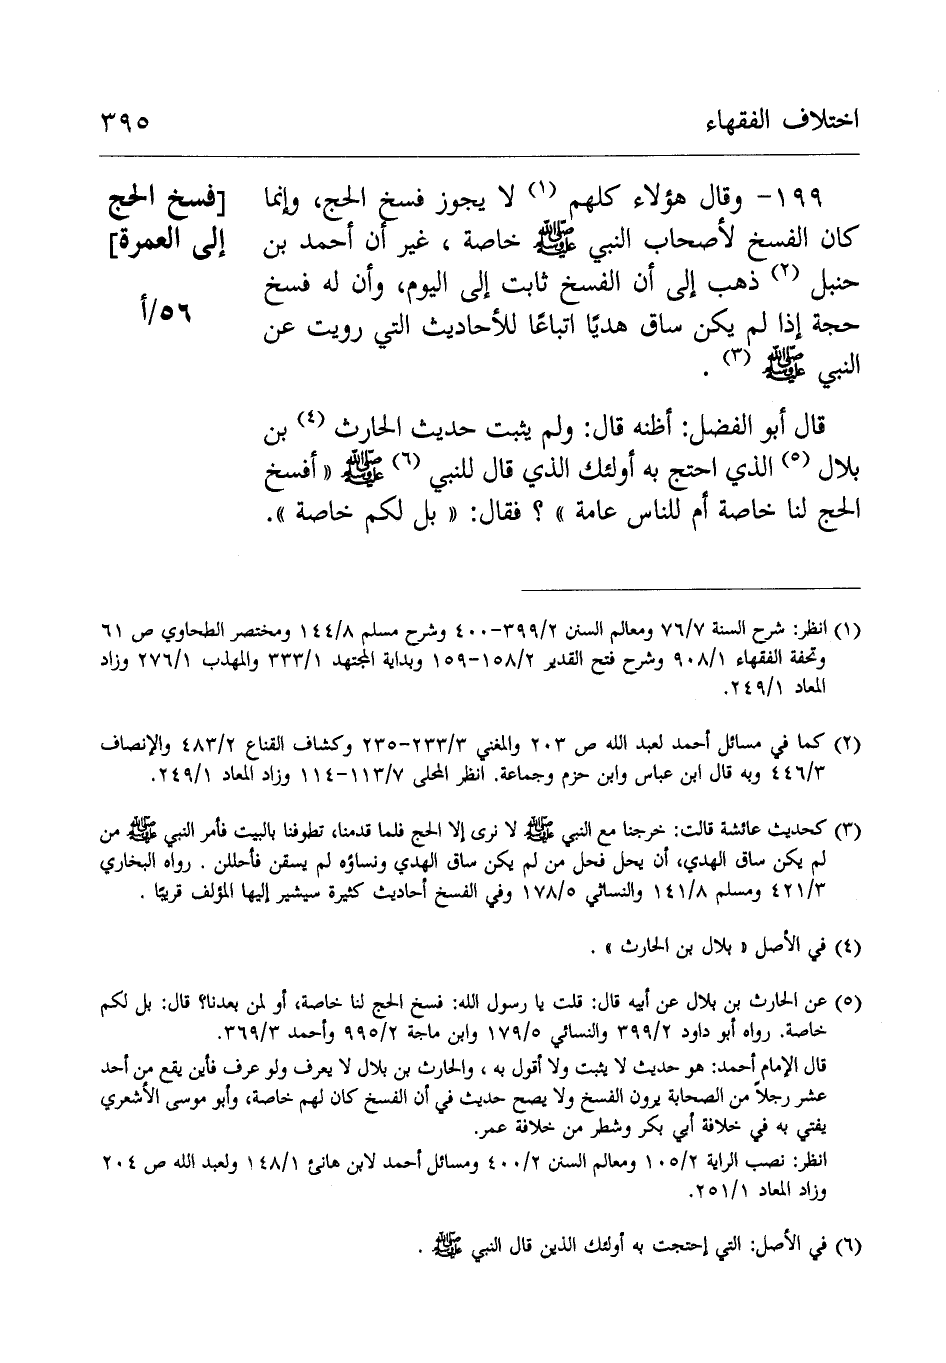 اختلاف الفقهاء
٣٩٥
١٩٩- وقال هؤلاء كلهم (١) لا يجوز فسخ الحج، وإنما
كان الفسخ لأصحاب النبي ﷺ خاصة ، غير أن أحمد بن
حنبل (٢) ذهب إلى أن الفسخ ثابت إلى اليوم، وأن له فسخ
حجة إذا لم يكن ساق هديًا اتباعًا للأحاديث التي رويت عن
النبي ﷺ (٣) .
[فسخ الحج
إلى العمرة]
٥٦/أ
قال أبو الفضل: أظنه قال: ولم يثبت حديث الحارث (٤) بن
بلال (٥) الذي احتج به أولئك الذي قال للنبي (٦) ﷺ « أفسخ
الحج لنا خاصة أم للناس عامة » ؟ فقال: « بل لكم خاصة ».
(١) انظر: شرح السنة ٧٦/٧ ومعالم السنن ٣٩٩/٢-٤٠٠ وشرح مسلم ١٤٤/٨ ومختصر الطحاوي ص ٦١
وتحفة الفقهاء ٩٠٨/١ وشرح فتح القدير ١٥٨/٢-١٥٩ وبداية المجتهد ٣٣٣/١ والمهذب ٢٧٦/١ وزاد
المعاد ٢٤٩/١.
(٢) كما في مسائل أحمد لعبد الله ص ٢٠٣ والمغني ٢٣٣/٣-٢٣٥ وكشاف القناع ٤٨٣/٢ والإنصاف
٤٤٦/٣ وبه قال ابن عباس وابن حزم وجماعة. انظر المحلى ١١٣/٧-١١٤ وزاد المعاد ٢٤٩/١.
(٣) كحديث عائشة قالت: خرجنا مع النبي ﷺ لا نرى إلا الحج فلما قدمنا، تطوفنا بالبيت فأمر النبي ﷺ من
لم يكن ساق الهدي، أن يحل فحل من لم يكن ساق الهدي ونساؤه لم يسقن فأحللن . رواه البخاري
٤٢١/٣ ومسلم ١٤١/٨ والنسائي ١٧٨/٥ وفي الفسخ أحاديث كثيرة سيشير إليها المؤلف قريبًا .
(٤) في الأصل « بلال بن الحارث » .
(٥) عن الحارث بن بلال عن أبيه قال: قلت يا رسول الله: فسخ الحج لنا خاصة، أو لمن بعدنا؟ قال: بل لكم
خاصة. رواه أبو داود ٣٩٩/٢ والنسائي ١٧٩/٥ وابن ماجة ٩٩٥/٢ وأحمد ٣٦٩/٣.
قال الإمام أحمد: هو حديث لا يثبت ولا أقول به ، والحارث بن بلال لا يعرف ولو عرف فأين يقع من أحد
عشر رجلاً من الصحابة يرون الفسخ ولا يصح حديث في أن الفسخ كان لهم خاصة، وأبو موسى الأشعري
يفتي به في خلافة أبي بكر وشطر من خلافة عمر.
انظر: نصب الراية ١٠٥/٢ ومعالم السنن ٤٠٠/٢ ومسائل أحمد لابن هانئ ١٤٨/١ ولعبد الله ص ٢٠٤
وزاد المعاد ٢٥١/١.
(٦) في الأصل: التي إحتجت به أولئك الذين قال النبي ﷺ .